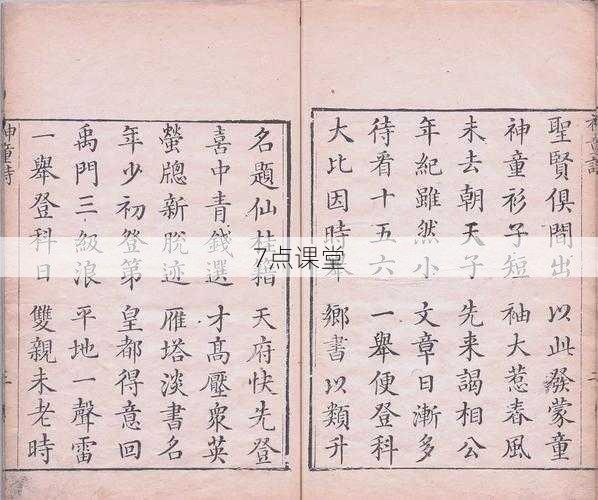 聖賢俱間出 以此發蒙童
神童衫子短 袖大惹春風
未去朝天子 先來謁相公
年紀雖然小 文章日漸多
待看十五六 一舉便登科
大比因時舉 鄉書以類升
名題仙桂籍 天府快先登
喜中青錢選 才高壓衆英
螢牕新脫迹 雁塔淡書名
年少初登第 皇都得意回
禹門三級浪 平地一聲雷
一舉登科日 雙親未老時
神童詩
7点课堂